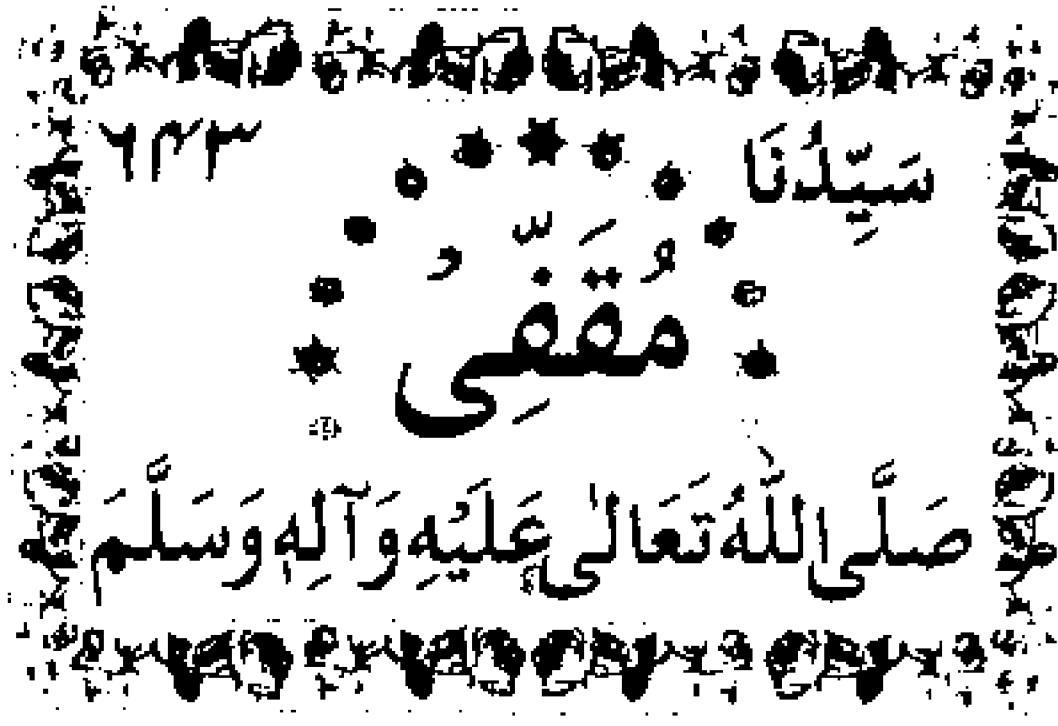 سَيِّدُنَا ۶۴۳
مُقَفِّىُ
صَلَّى اللّٰهُ تَعَالٰى عَلَيْهِ وَآلِهٖ وَسَلَّمَ